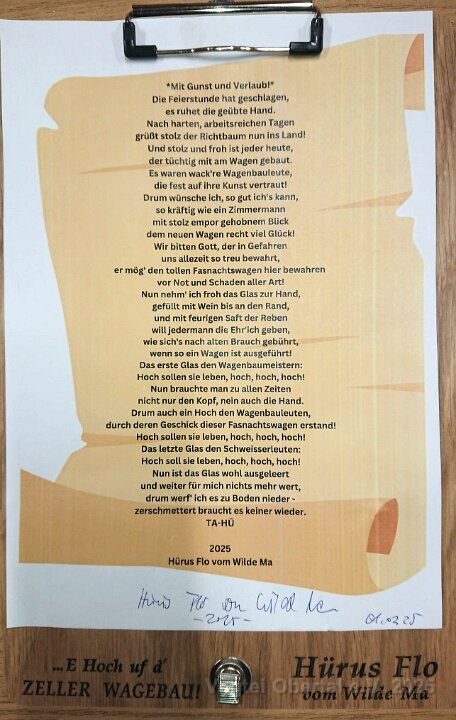 *Mit Gunst und Verlaub!*
Die Feierstunde hat geschlagen,
es ruhet die geübte Hand.
Nach harten, arbeitsreichen Tagen
grüßt stolz der Richtbaum nun ins Land!
Und stolz und froh ist jeder heute,
der tüchtig mit am Wagen gebaut.
Es waren wack're Wagenbauleute,
die fest auf ihre Kunst vertraut!
Drum wünsche ich, so gut ich's kann,
so kräftig wie ein Zimmermann
mit stolz empor gehobnem Blick
dem neuen Wagen recht viel Glück!
Wir bitten Gott, der in Gefahren
uns allezeit so treu bewahrt,
er mög' den tollen Fasnachtswagen hier bewahren
vor Not und Schaden aller Art!
Nun nehm' ich froh das Glas zur Hand,
gefüllt mit Wein bis an den Rand,
und mit feurigen Saft der Reben
will jedermann die Ehr'ich geben,
wie sich's nach alten Brauch gebührt,
wenn so ein Wagen ist ausgeführt!
Das erste Glas den Wagenbaumeistern:
Hoch sollen sie leben, hoch, hoch, hoch!
Nun brauchte man zu allen Zeiten
nicht nur den Kopf, nein auch die Hand.
Drum auch ein Hoch den Wagenbauleuten,
durch deren Geschick dieser Fasnachtswagen erstand!
Hoch sollen sie leben, hoch, hoch, hoch!
Das letzte Glas den Schweisserleuten:
Hoch soll sie leben, hoch, hoch, hoch!
Nun ist das Glas wohl ausgeleert
und weiter für mich nichts mehr wert,
drum werf' ich es zu Boden nieder -
zerschmettert braucht es keiner wieder.
TA-HÜ
2025
Hürus Flo vom Wilde Ma
Hürus Flo vom Wilde Ma
-2025-
01.02.25
...E Hoch uf d'
ZELLER WAGEBAU!
Hürus Flo
vom Wilde Ma